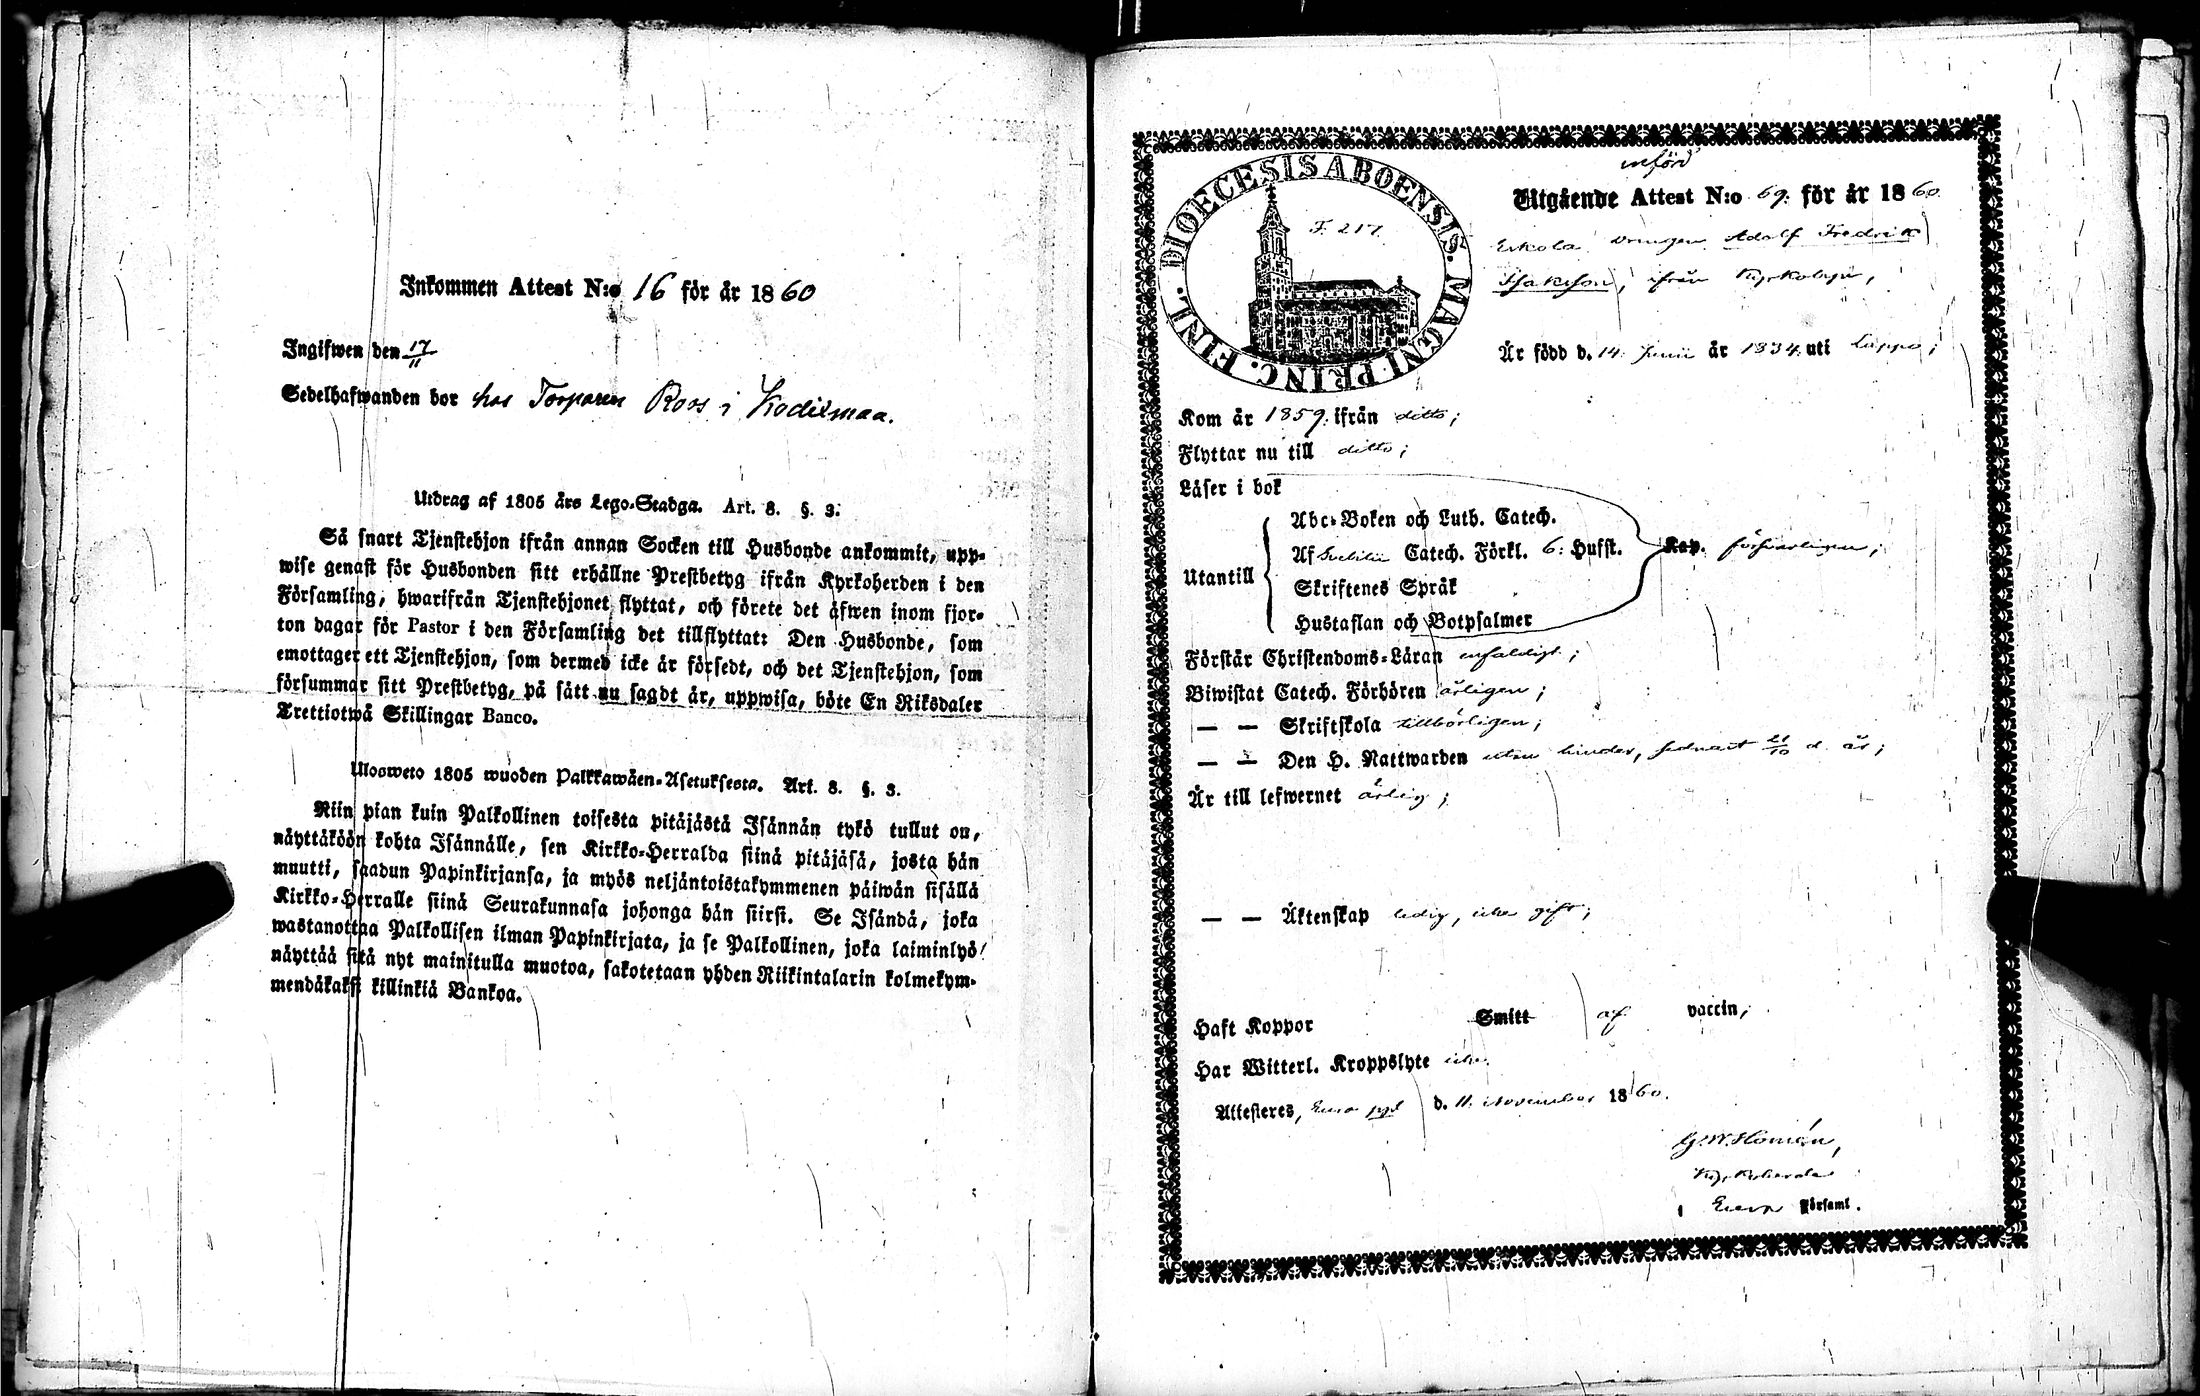 Inkommen Attest N:o 16 för år 1860
Ingifwen den 17/11
Sedelhafwanden bor hos Torparen Roos i Kodixmaa.
Utdrag af 1805 års Lego-Stadga. Art. 8. §. 3.
Så snart Tjenstehjon ifrån annan Socken till Husbonde ankommit, upp-
wise genast för Husbonden sitt erhållne Prestbetyg ifrån Kyrkoherden i den
Församling, hwarifrån Tjenstehjonet flyttat, och förete det äfwen inom fjor-
ton dagar för Pastor i den Församling det tillflyttat: Den Husbonde, som
emottager ett Tjenstehjon, som dermed icke är försedt, och det Tjenstehjon, som
försummar sitt Prestbetyg, på sätt nu sagdt är, uppwisa, böte En Riksdaler
Trettiotwå Skillingar Banco.
Ulosweto 1805 wuoden Palkkawäen-Asetuksesta. Art. 8. §. 3.
Niin pian kuin Palkollinen toisesta pitäjästä Isännän tykö tullut on,
näyttäköön kohta Isännälle, sen Kirkko-Herralda siinä pitäjäsä, josta hän
muutti, saadun Papinkirjansa, ja myös neljäntoistakymmenen päiwän sisällä
Kirkko-Herralle siinä Seurakunnasa johonga hän siirsi. Se Isändä, joka
wastanottaa Palkollisen ilman Papinkirjata, ja se Palkollinen, joka laiminlyö
näyttää sitä nyt mainitulla muotoa, sakotetaan yhden Riikintalarin kolmekym-
mendäkaksi killinkiä Bankoa.
DIOECESIS ABOENSIS. MAGNI PRINC. FINL.
F. 217
införd
Utgående Attest N:o 69. för år 1860.
Eskola drängen Adolf Fredrik
Isaksson, ifrån Kyrkobyn,
Är född d. 14. Junii år 1834. uti Lappo;
Kom år 1859. ifrån ditto;
Flyttar nu till ditto;
Läser i bok
Utantill
Abc-Boken och Luth. Catech.
Af Svebilii Catech. Förkl. 6: Hufst.
Skriftenes Språk
Hustaflan och Botpsalmer
Kap. försvarligen;
Förstår Christendoms-Läran enfaldigt;
Biwistat Catech. Förhören årligen;
— — Skriftskola tillbörligen;
— — Den H. Nattwarden utan hinder, sednast 21/10 d. år;
Är till lefwernet ärlig;
— — Äktenskap ledig, icke gift;
Haft Koppor Smitt af vaccin;
Har Witterl. Kroppslyte icke.
Attesteres, Eura pgd d. 11. November 1860.
G. W. Homén,
Kyrkoherde
i Eura Församl.